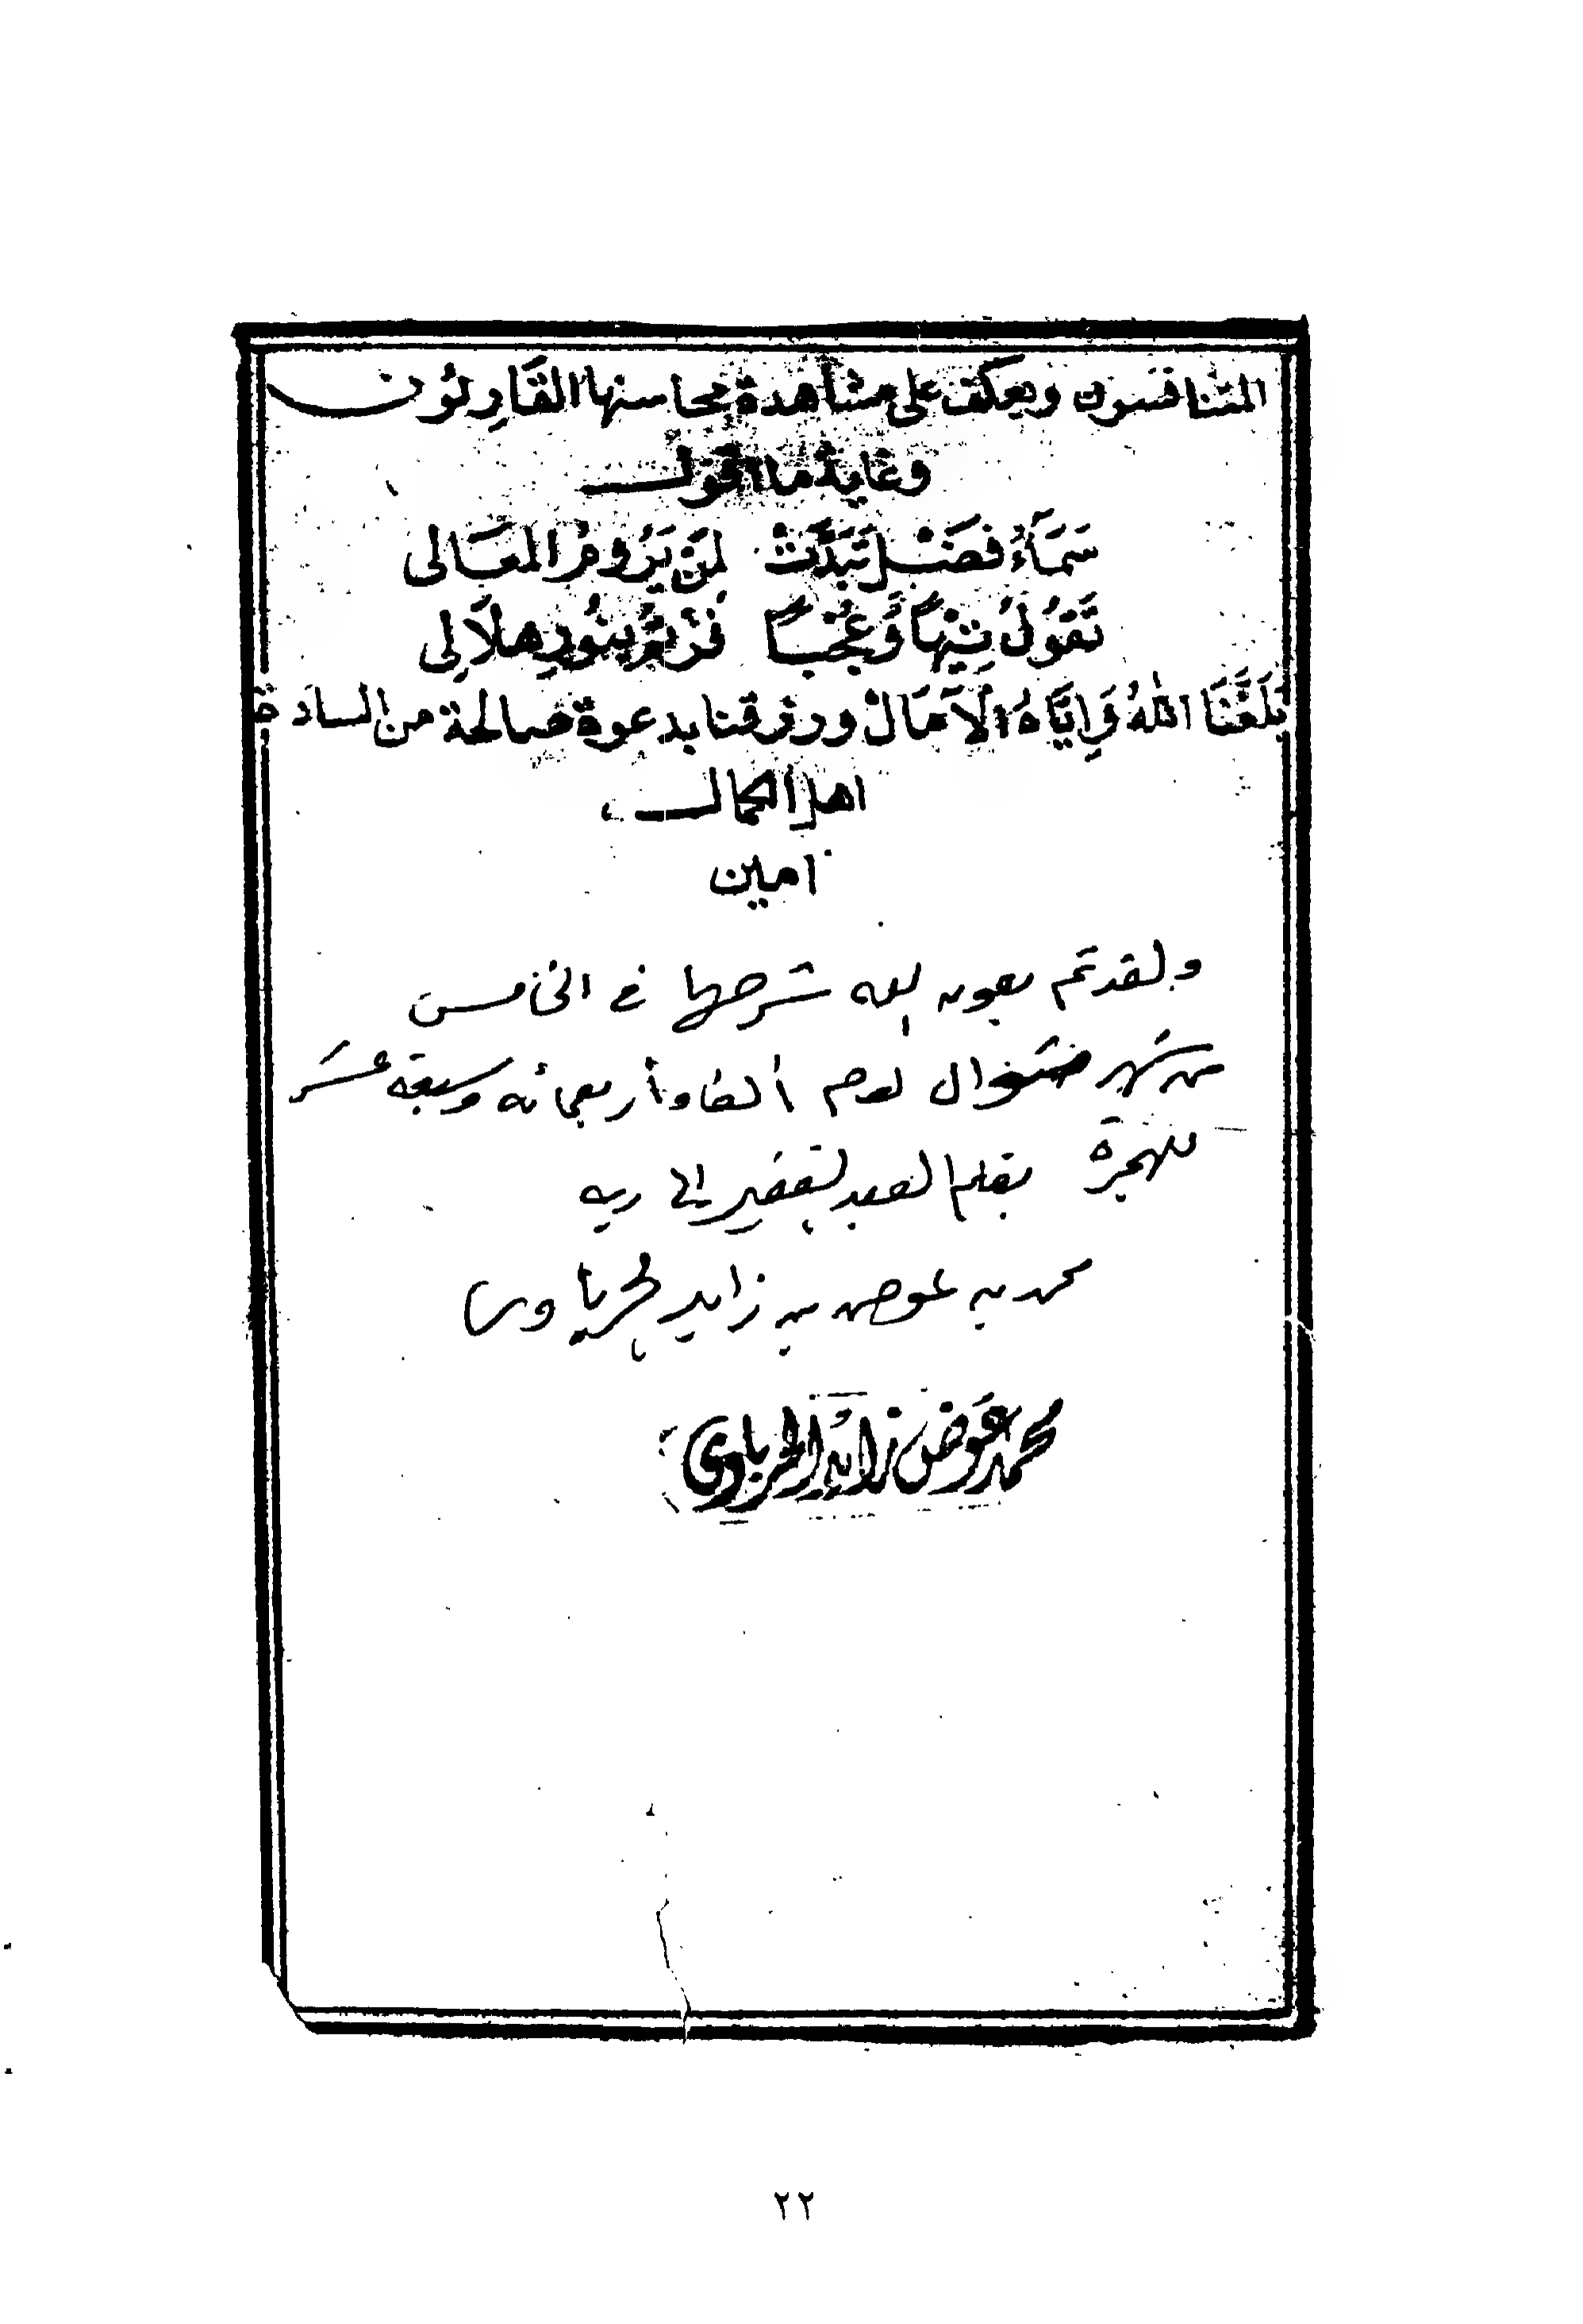 المتنافسون ويعكف على مشاهدة محاسنها القارئون
وغاية ما اقول
سَمَآءُ فَضْلٍ تَبَدَّتْ لِمَنْ يَرُومُ المَعَالى
تَقُولُ تِيْهًا وَّعُجْبًا فُزْتُمْ بِنُورِ هِلَالِى
بَلَغَّنَا اللّٰهُ وَاِيَّاهُ الْآمَالْ ورزقنا بدعوة صالحة من السادة
اهل الكمال
امين
ولقد تم بعون الله شرحها في الخامس
من شهر شوال لعام ألف وأربعمائة وسبعة عشر
للهجرة بقلم العبد الفقير إلى ربه
محمد بن عوض بن زايد الحرباوي
محمد عوض زايد الحرباوى
٢٢